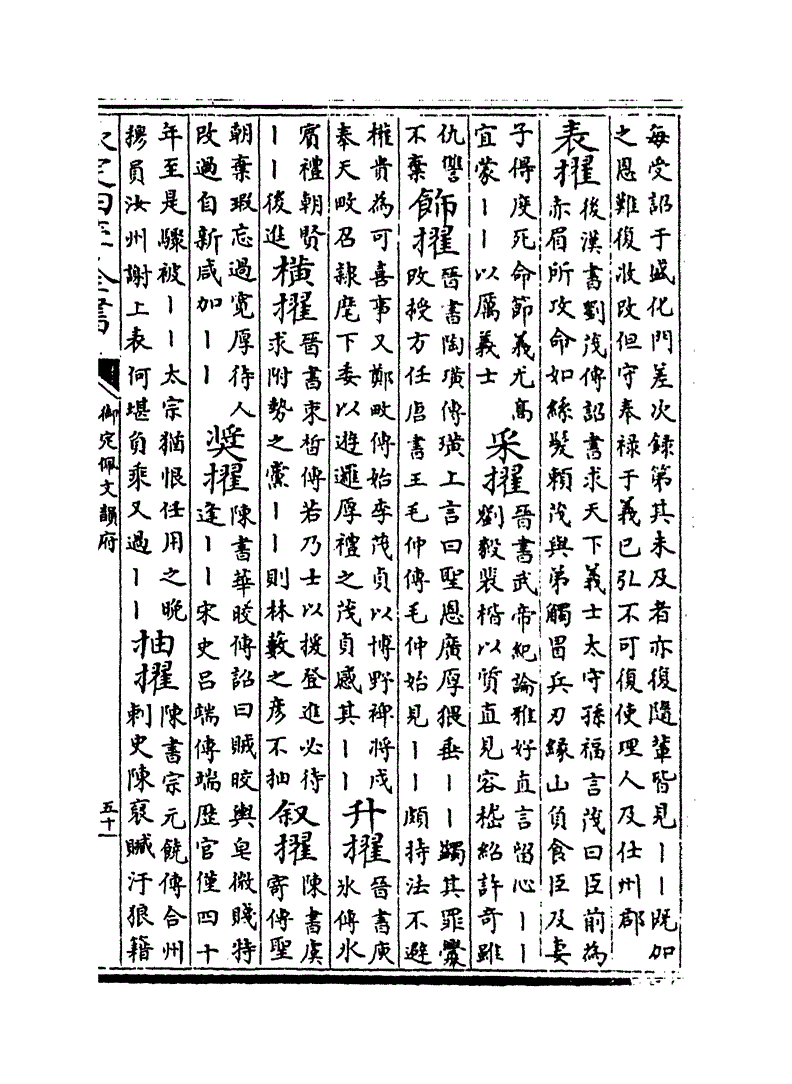 每受詔于盛化門差次錄第其未及者亦復隨輩皆見丨丨既加
之恩難復收改但守奉禄于義已弘不可復使理人及仕州郡
表擢
後漢書劉茂傳詔書求天下義士太守孫福言茂曰臣前為
赤眉所攻命如絲髮賴茂與弟觸冒兵刃緣山負食臣及妻
子得度死命節義尤高
宜蒙丨丨以厲義士
采擢
晉書武帝紀論雅好直言留心丨丨
劉毅裴楷以質直見容嵇紹許奇雖
仇讐
不棄
飾擢
晉書陶璜傳璜上言曰聖恩廣厚猥垂丨丨蠲其罪釁
改授方任唐書王毛仲傳毛仲始見丨丨頗持法不避
權貴為可喜事又鄭畋傳始李茂貞以博野裨將戍
奉天畋召隸麾下委以遊邏厚禮之茂貞感其丨丨
升擢
晉書庾
冰傳冰
賓禮朝賢
丨丨後進
橫擢
晉書束皙傳若乃士以援登進必待
求附勢之黨丨丨則林藪之彥不抽
叙擢
陳書虞
寄傳聖
朝棄瑕忘過寬厚待人
改過自新咸加丨丨
奬擢
陳書華皎傳詔曰賊皎輿皂微賤特
逢丨丨宋史吕端傳端歴官僅四十
年至是驟被丨丨太宗猶恨任用之晚
員汝州謝上表何堪負乘又過丨丨
抽擢
陳書宗元饒傳合州
刺史陳裒贓汙狼籍
欽定四庫全書
御定佩文韻府
五十一